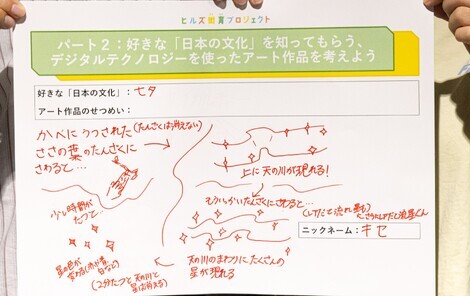 ヒルズ街育プロジェクト
パート2:好きな「日本の文化」を知ってもらう、
デジタルテクノロジーを使ったアート作品を考えよう
好きな「日本の文化」:七夕
アート作品のせつめい:
かべにうつされた(たんざくは消えない)
ささの葉のたんざくに
さわると…
上に天の川が現れる!
もういちどたんざくにさわると…
天の川のまわりにたくさんの
星が現れる
(2分たつと天の川と
星は消える)
少し時間が
たつと…
星の色が
変わる
白など)
ニックネーム:キセ